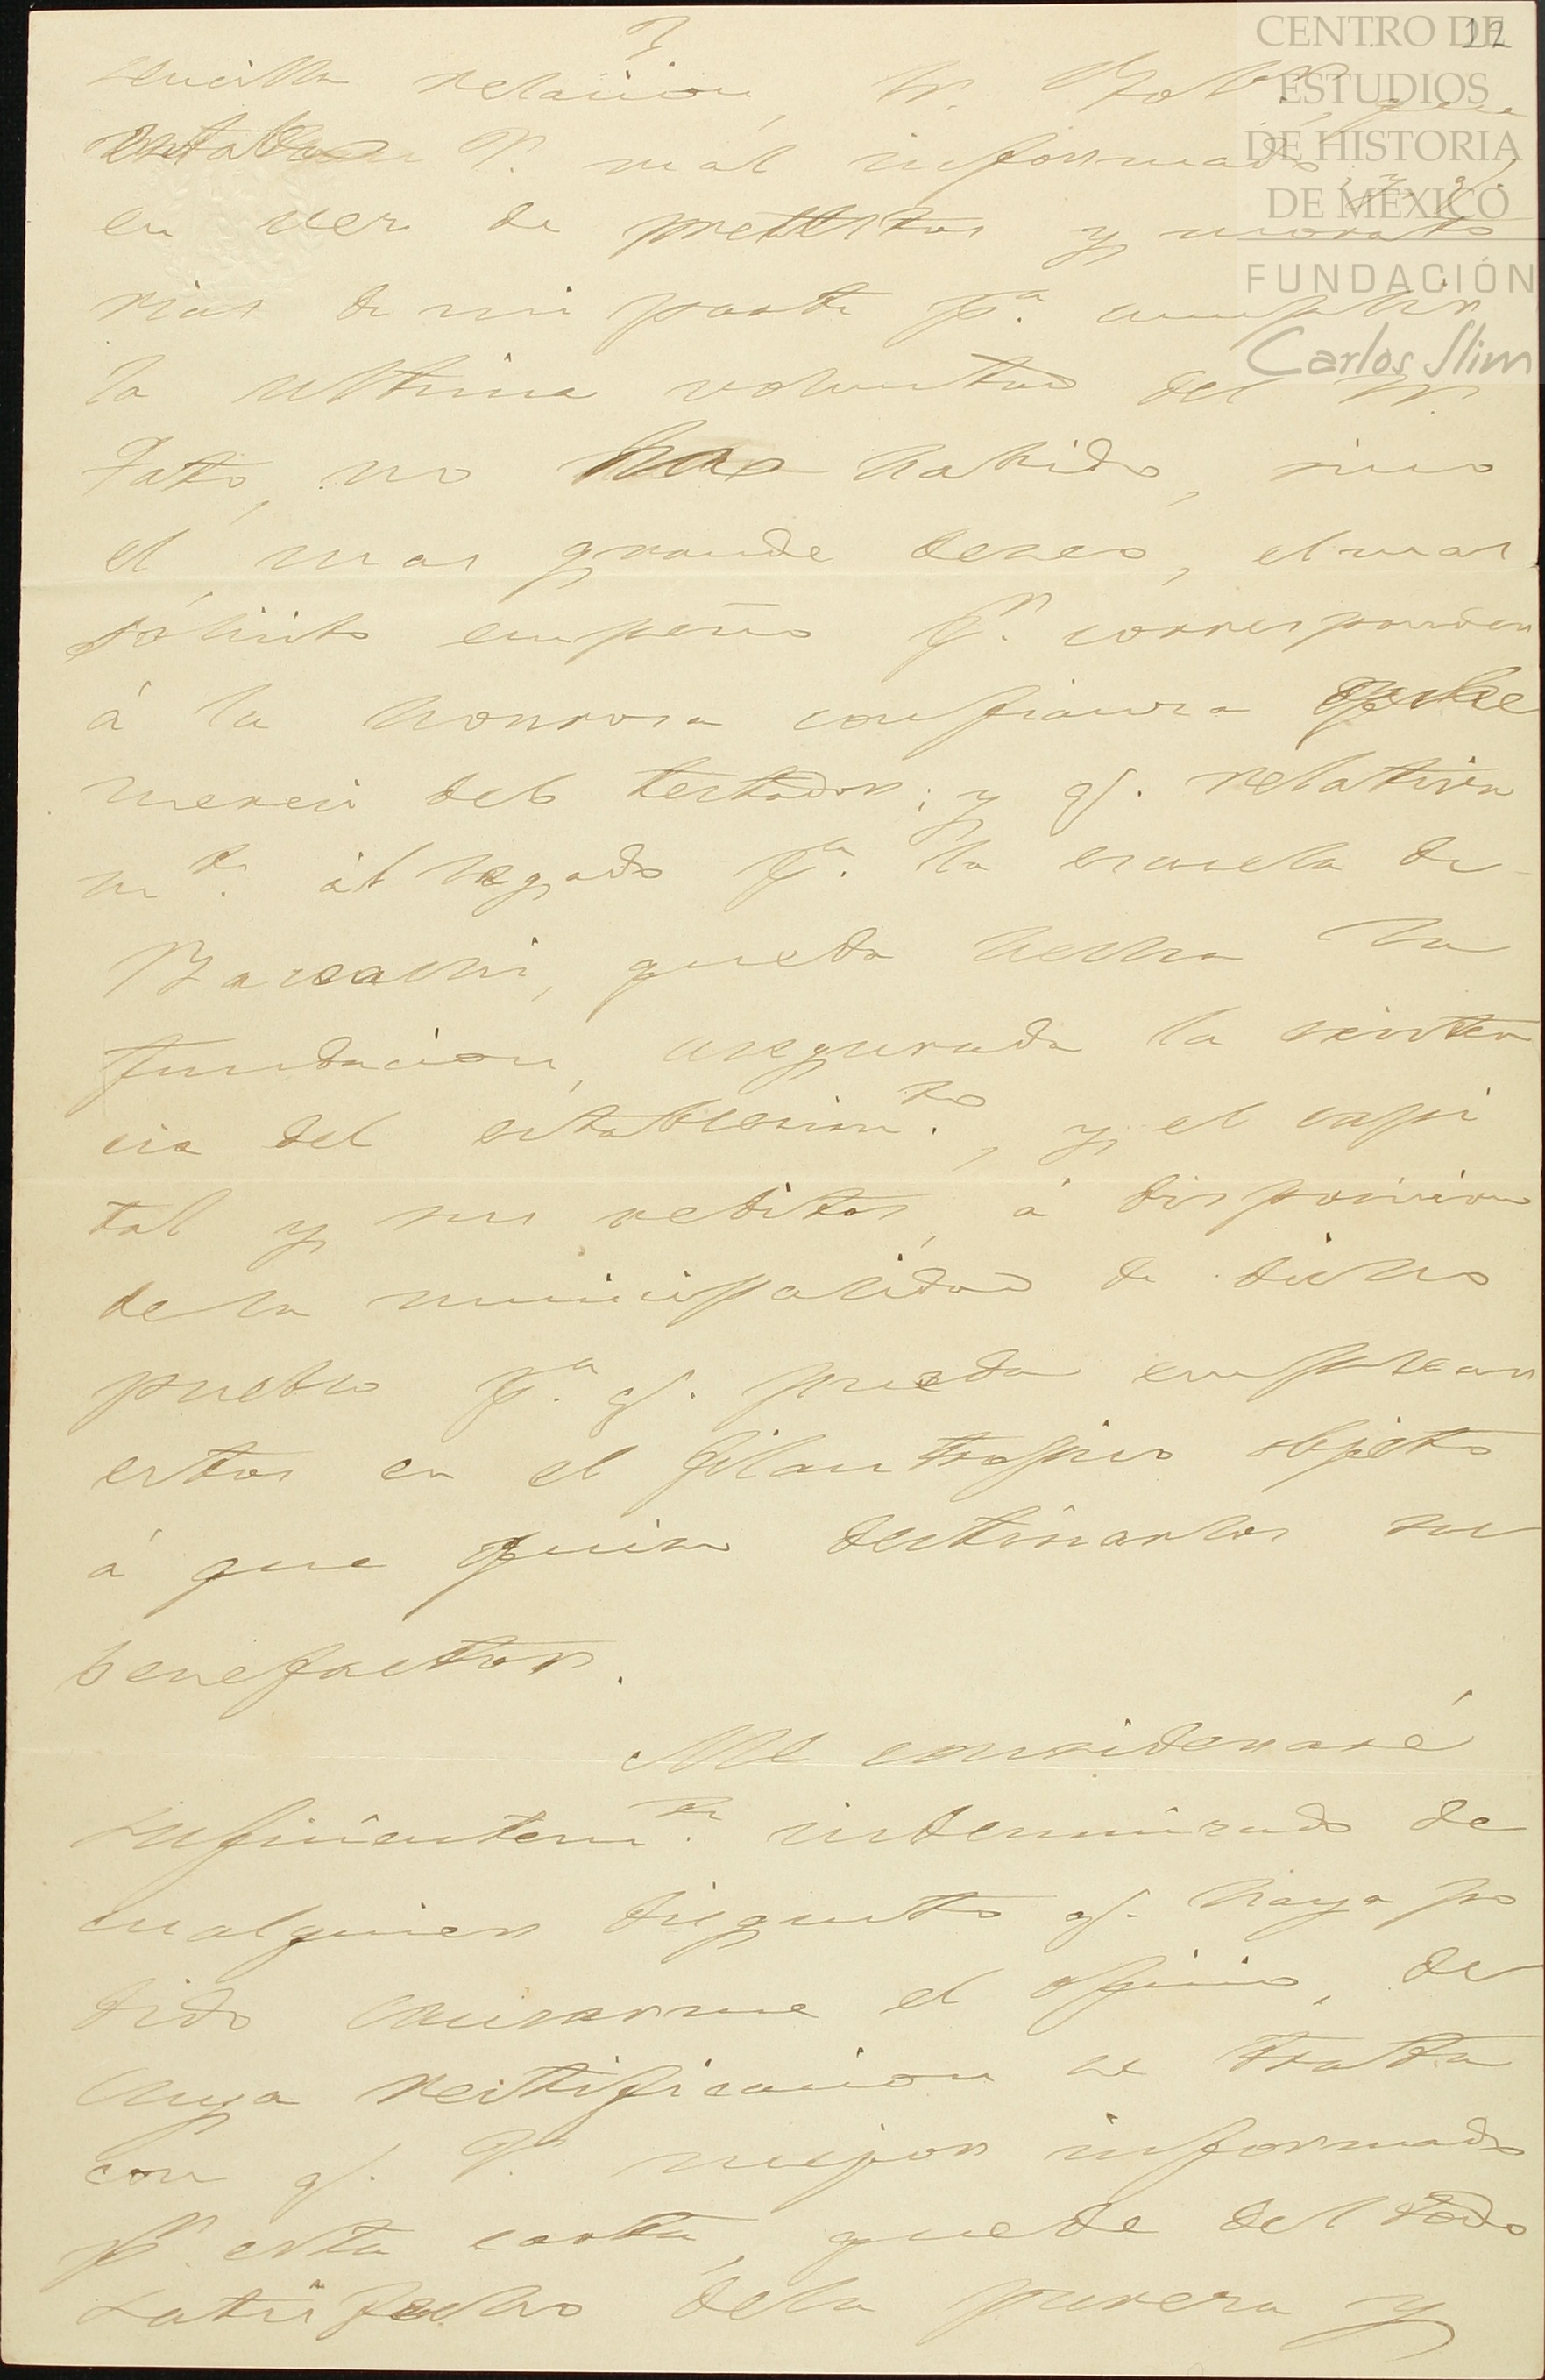 CENTRO DE
ESTUDIOS
DE HISTORIA
DE MÉXICO
FUNDACIÓN
Carlos Slim
12
sencilla relacion, Sr. Gob.r, que
estaba V. mal informado, y q.
en vez de pretestos y morato
rias de mi parte p.a cumplir
la ultima voluntad del Sr.
Tato, no han habido, sino
el mas grande deseo, el mas
sólicito empeño p.r corresponder
á la honrosa confianza que
mereci del testador; y q. relativa
m.te al legado p.a la escuela de
Bacoachi, queda hecha la
fundacion, asegurada la existen
cia del establecim.to, y el capi
tal y sus reditos, á disposicion
de la municipalidad de dicho
pueblo p.a q. pueda emplear
estos en el filantropico objeto
á que quiso destinarlos su
benefactor.
Me consideraré
suficientem.te indemnizado de
cualquier disgusto q. haya po
dido causarme el oficio, de
cuya rectificacion se trata
con q. V. mejor informado
p.r esta carta, quede del todo
satisfecho de la pureza y